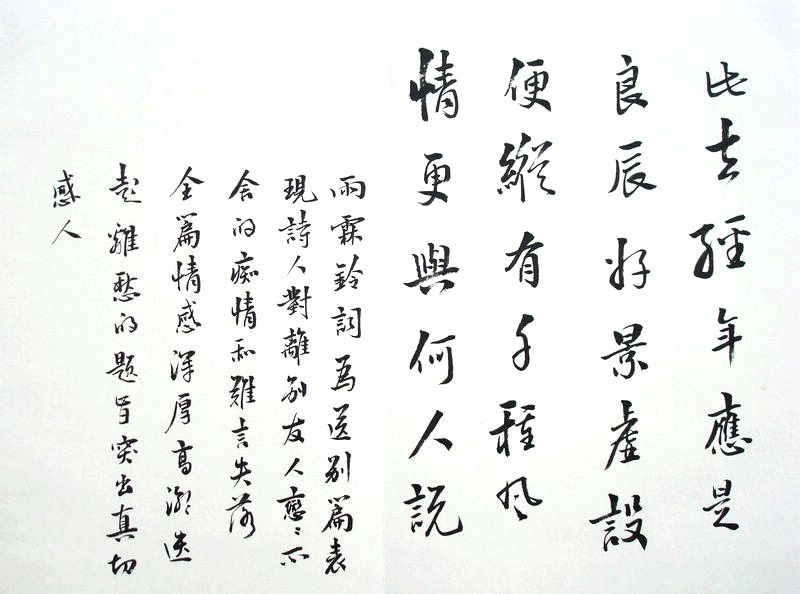 此去經年應是
良辰好景虛設
便縱有千種風
情更與何人說
雨霖鈴詞為送別篇表
現詩人對離別友人戀々不
舍的痴情和難言失落
全篇情感深厚高潮迭
起離愁的題旨突出真切
感人